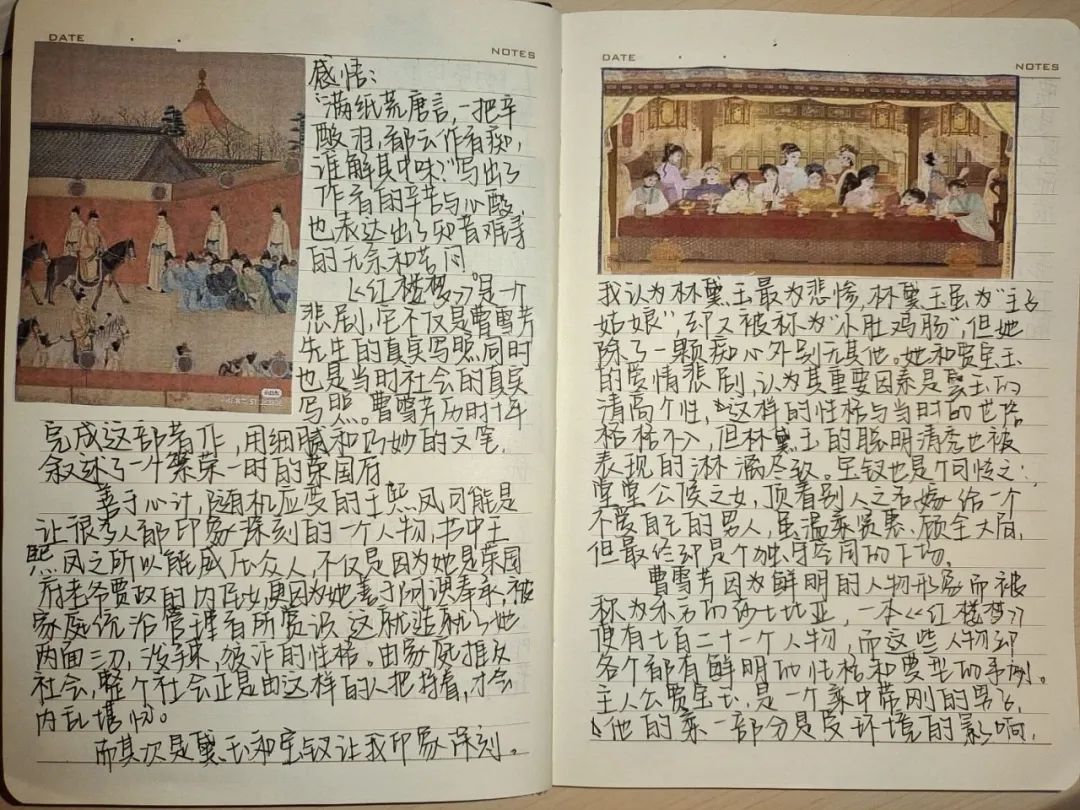 DATE
NOTES
感情：
“满纸荒唐言，一把辛
酸泪，都云作者痴，
谁解其中味？”写出了
作者的辛苦与心酸
也表达出了知音难寻
的无奈和苦闷
《红楼梦》是一个
悲剧，它不仅是曹雪芹
先生的真实写照，同时
也是当时社会的真实
写照。曹雪芹历时十年
完成这部著作，用细腻和巧妙的文笔，
叙述了一个繁荣一时的荣国府
善于心计，随机应变的王熙凤可能是
让很多人都印象深刻的一个人物，书中王
熙凤之所以能威压众人，不仅是因为她是荣国
府老爷贾政的内侄女，更因为她善于阿谀奉承，被
家庭统治管理者所赏识 这就造就了她
两面三刀，泼辣，狡诈的性格。由家庭推及
社会，整个社会正是由这样的人把持着，才会
内乱塌
而其次是黛玉和宝钗让我印象深刻。
DATE
NOTES
我认为林黛玉最为悲惨，林黛玉虽为“主子
姑娘”，却又被称为“小肚鸡肠”，但她
除了一颗痴心外别无其他。她和贾宝玉
的爱情悲剧，认为其重要因素是黛玉的
清高个性，这样的性格与当时的世俗
格格不入，但林黛玉的聪明清秀也被
表现的淋漓尽致。宝钗也是个可怜之：
堂堂公侯之女，顶着别人之名嫁给一个
不爱自己的男人，虽温柔贤惠、顾全大局，
但最终却是个独守空闺的下场。
曹雪芹因为鲜明的人物形象而被
称为东方的莎士比亚，一本《红楼梦》
便有七百二十一个人物，而这些人物却
各个都有鲜明的性格和典型的事例。
主人公贾宝玉，是一个柔中带刚的男子，
他的柔一部分是受环境的影响，